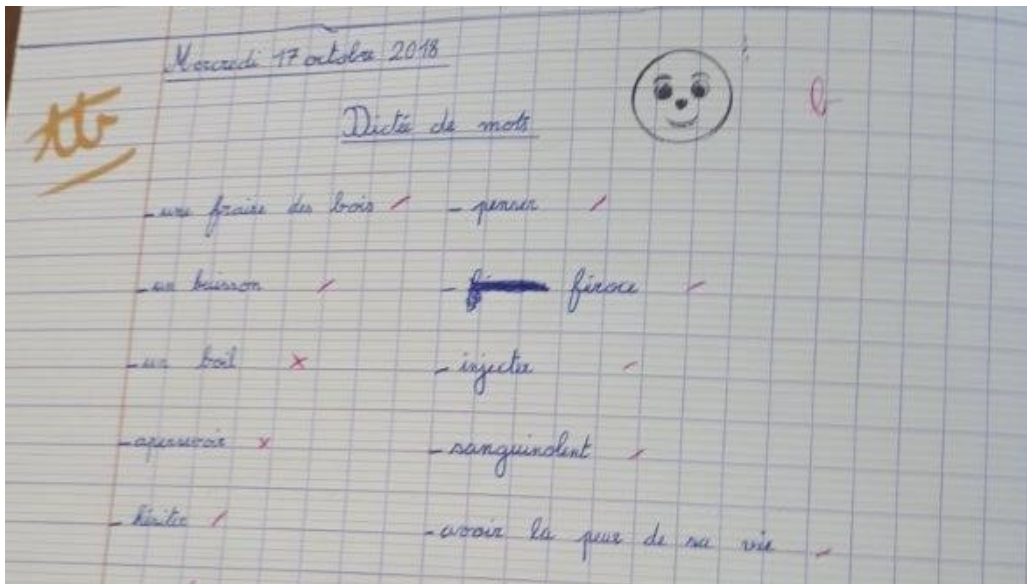 Mercredi 17 octobre 2018
ttb
Dictée de mots
- une fraise des bois
- un buisson
- un boil
- apersevoir
- hériter
- penser
- féroce
- injecter
- sanguinolent
- avoir la peur de sa vie